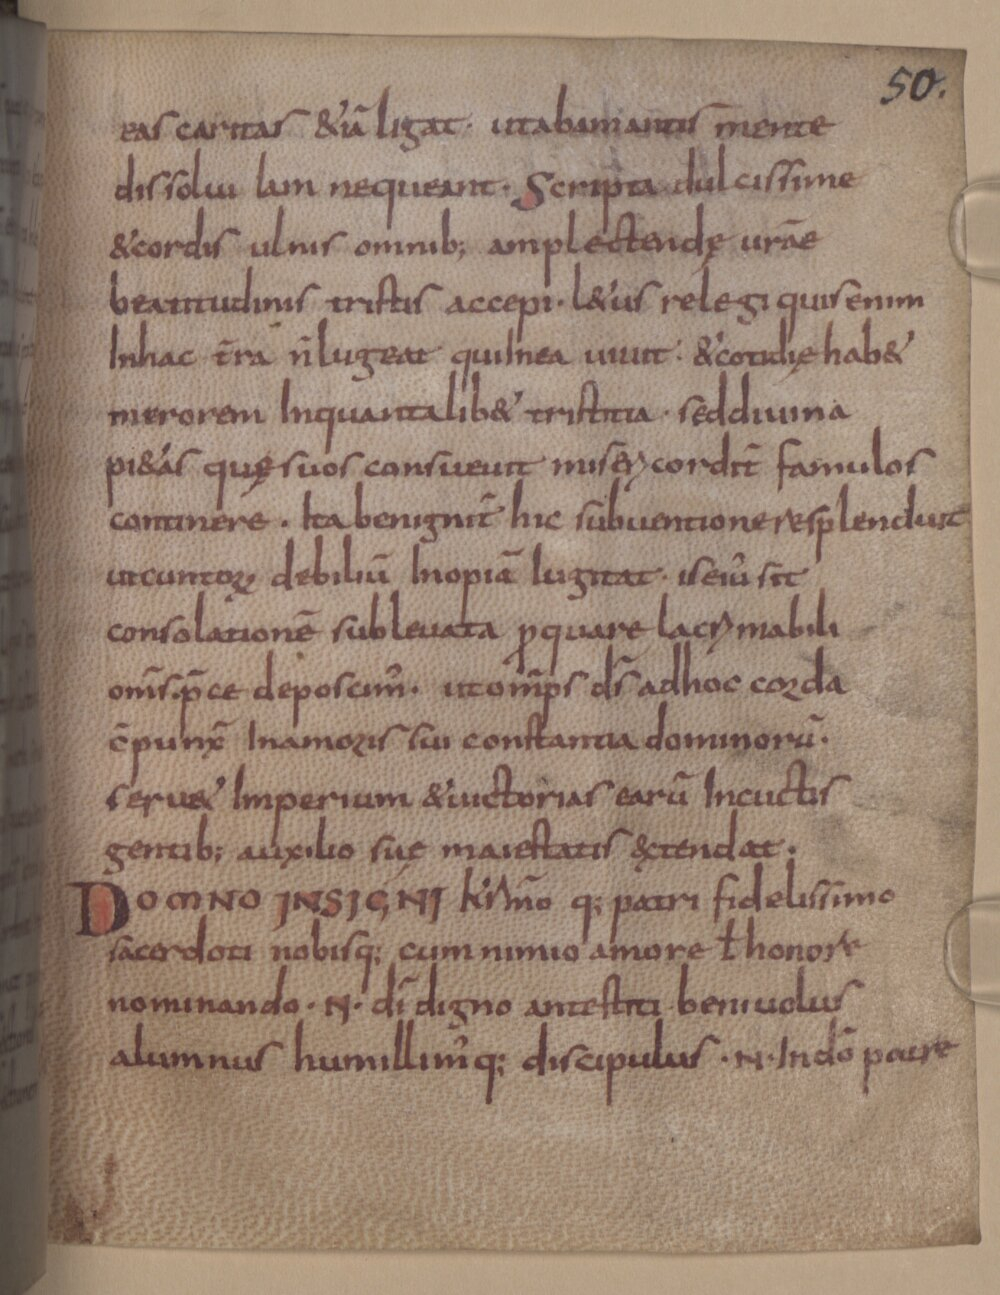 50.
eas caritas &iā ligat· utabamantis m̄ente
dissolui iam nequeant· Scripta dulcissime
&cordis ulnis omnib; amplectendę urāe
beatitudinis tristis accepi· l&us relegi quis enim
Inhac t̄rā n̄ lugeat quiInea uiuit· &cotidię hab&
merorem Inquantalib& tristitia· sed diuina
pi&ás quę suos consueuit mis̄cordit̄ famulos
continere· Ita benignit̄ hic subuentione resplenduit
utcuntoꝝ debiliū Inopiā lugitat· iseiū sit
consolationē subleuata ꝓquare lacrymabili
om̄s p̄ce deposcim̄· utom̄ps ds̄ adhoc corda
c̄punx̄ Inamoris sui constantia dominorū·
seru& Imperium &uictorias earū Incuctis
gentib; auxilio suę maiestatis &tendat·
DOMNO INSIGNI kr̄mo q; patri fidelissimo
sacerdoti nobisq; cum nimio amore t̄ honore
nominando· N· dī digno antestiti beniuolus
alumnus humillim̄q; discipulus· N· Indō patre